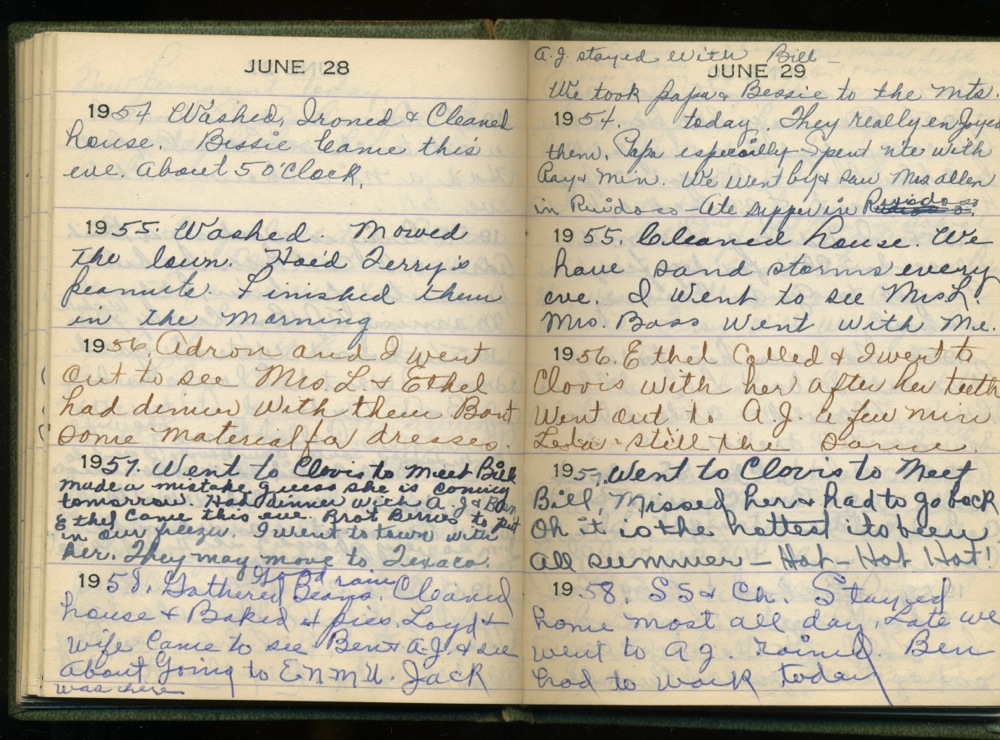 JUNE 28
1954 Washed, Ironed & Cleaned
house. Bessie Came this
eve. About 5 O'Clock,
1955. Washed. Mowed
the lawn. Hoed Terry's
peanuts. Finished them
in the morning
1956. Adron and I went
out to see Mrs. L & Ethel
had dinner with them Bort
some material for dresses.
1957. Went to Clovis to meet Bill
made a mistake guess she is coming
tomorrow. Had dinner with A.J. &
Ethel Came this eve. Brot Berries to put
in our freezer. I went to town with
her. They may move to Texaco.
Good rain
1958. Gathered Beans. Cleaned
house & Baked 4 pies. Loyd &
wife Came to see Ben & A.J. & see
About Going to E.N.M.U. Jack
was here
A.J. stayed with Bill -
JUNE 29
We took papa & Bessie to the mts.
1954. today. They really enjoyed
them. Papa especially - Spent nite with
Ray & Min. We went by & saw Mrs Allen
in Ruidoso - Ate supper in
1955. Cleaned house. We
have sand storms every
eve. I went to see Mrs L.
Mrs. Bass went with Me.
1956. Ethel Called & I went to
Clovis with her after her teeth
Went out to A.J. a few min
Leda still the same.
1957. Went to Clovis to Meet
Bill, Missed her & had to go back
Oh it is the hottest its been
all summer - Hot - Hot Hot!
1958. SS & Ch. Stayed
home most all day. Late we
went to A.J. rained. Ben
had to work today